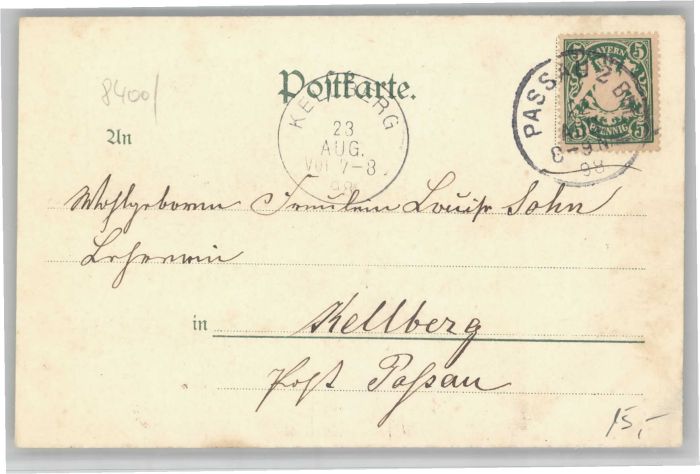 8400/
Postkarte.
BAYERN
5 5
5 PFENNIG 5
PASSAU 2 B
8-9 N
98
KELLBERG
23
AUG.
Vor 7-8
98
An
Wohlgeboren Fräulein Louise Sohn
Lehrerin
in Kellberg
Post Passau
15,-